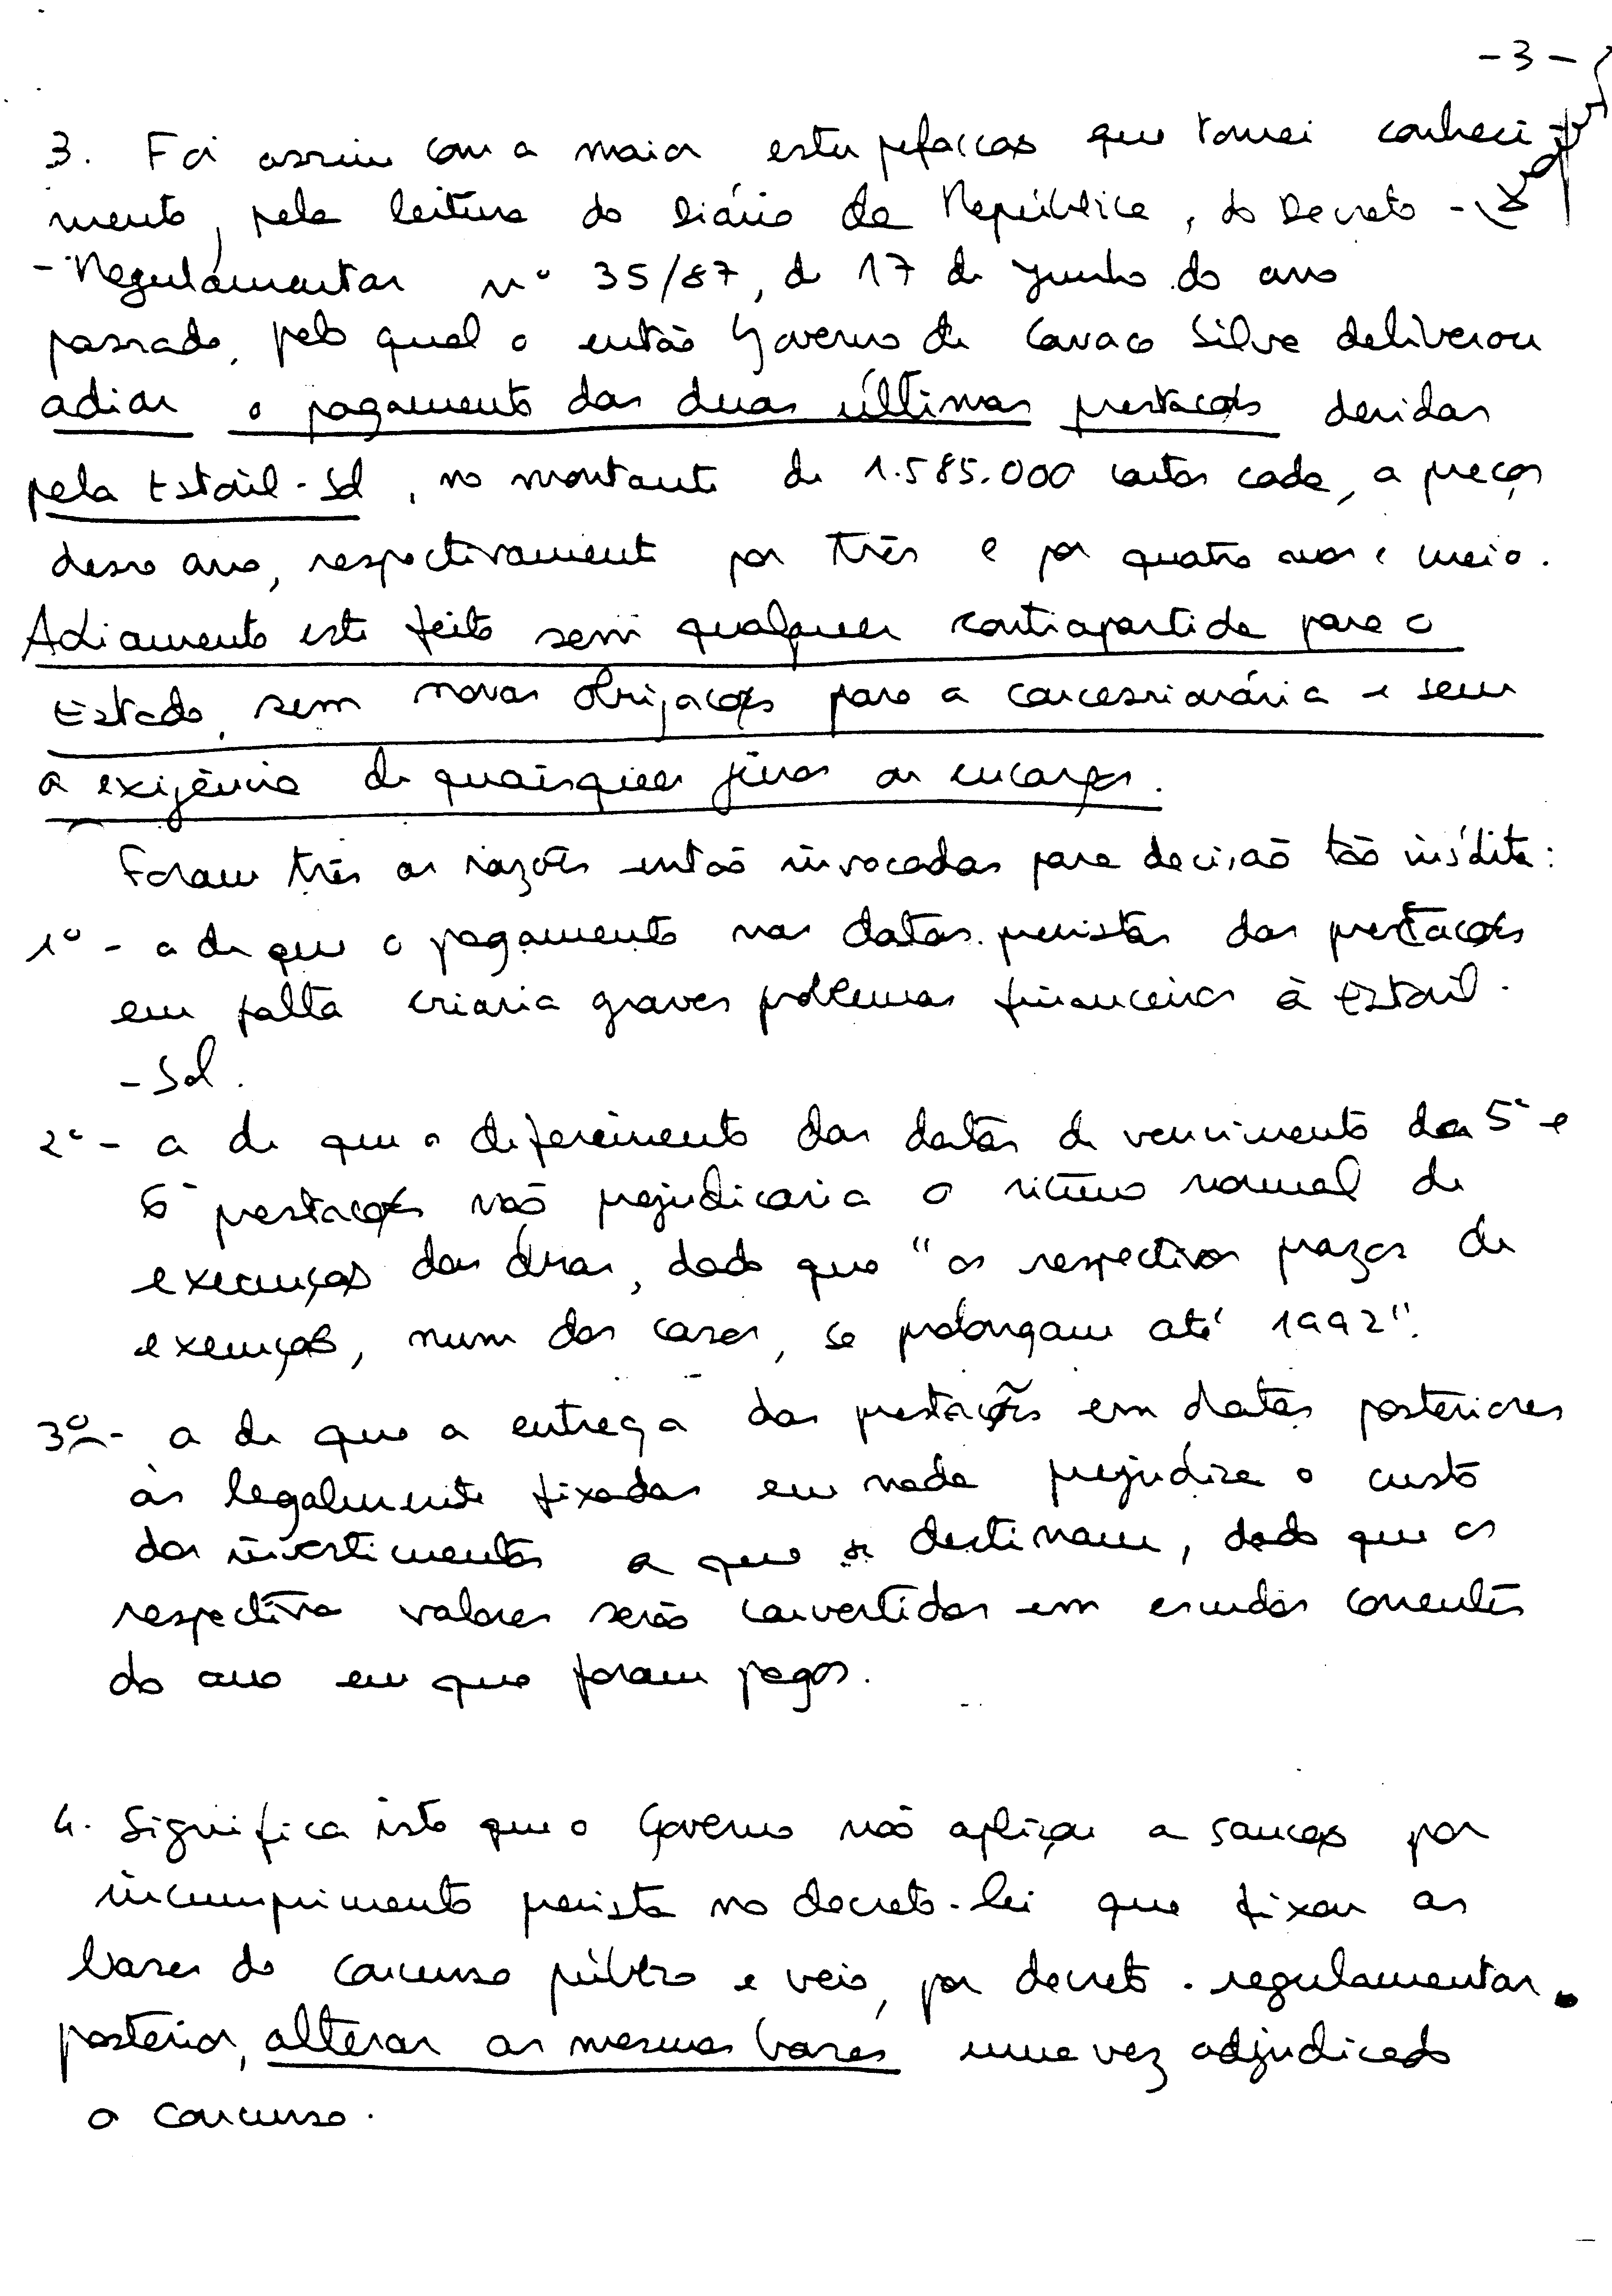 -3-
3. Foi assim com a maior estupefacção que tomei conheci-
mento, pela leitura do Diário da República, do Decreto-
-Regulamentar nº 35/87, de 17 de Junho do ano
passado, pelo qual o então Governo de Cavaco Silva deliberou
adiar o pagamento das duas últimas prestações devidas
pela Estoril-Sol, no montante de 1.585.000 contos cada, a preços
desse ano, respectivamente por três e por quatro anos e meio.
Adiamento este feito sem qualquer contrapartida para o
Estado, sem novas obrigações para a concessionária e sem
a exigência de quaisquer juros ou encargos.
Foram três as razões então invocadas para decisão tão insólita:
1º - a de que o pagamento nas datas previstas das prestações
em falta criaria graves problemas financeiros à Estoril-
-Sol.
2ª - a de que o diferimento das datas de vencimento da 5ª e
6ª prestações não prejudicaria o ritmo normal de
execução das obras, dado que "os respectivos prazos de
execução, num dos casos, se prolongam até 1992".
3º - a de que a entrega das prestações em datas posteriores
às legalmente fixadas em nada prejudica o custo
dos investimentos a que se destinam, dado que os
respectivos valores serão convertidos em escudos correntes
do ano em que foram pagos.
4. Significa isto que o Governo não aplicou a sanção por
incumprimento prevista no decreto-lei que fixou as
bases do concurso público e veio, por decreto-regulamentar
posterior, alterar as mesmas bases uma vez adjudicado
o concurso.